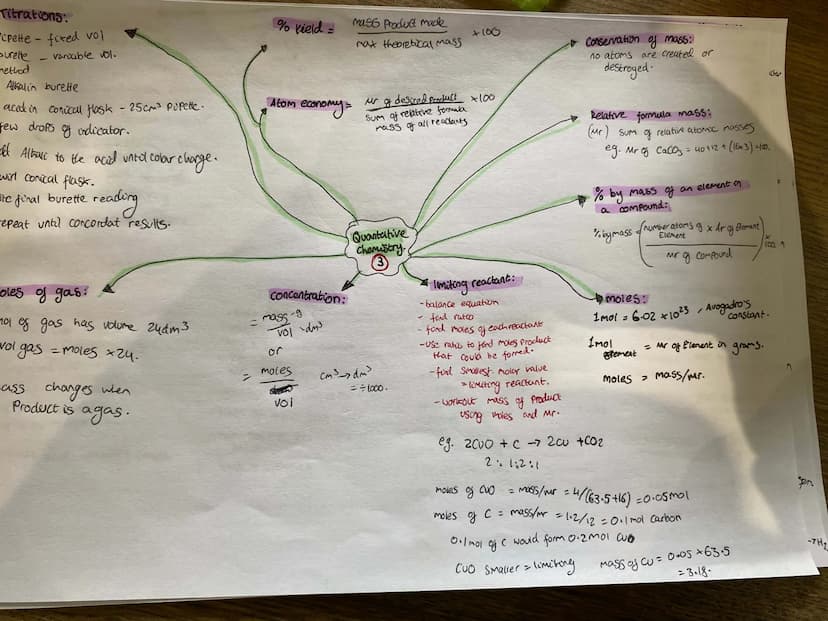 Titrations:
pipette - fixed vol
burette - variable vol.
method
Alkali in burette
acid in conical flask - 25cm³ pipette.
few drops of indicator.
Alkali to the acid until colour change.
swirl conical flask.
final burette reading
repeat until concordat results.
% Yield = mass product made / max theoretical mass ×100
Atom economy = Mr of desired product / sum of relative formula mass of all reactants ×100
Conservation of mass:
no atoms are created or
destroyed.
Relative formula mass:
(Mr) sum of relative atomic masses
eg. Mr of CaCO₃ = 40+12+(16×3)=100.
% by mass of an element in
a compound:
% by mass = (number atoms of Element × Ar of Element / Mr of compound) × 100
Quantative
Chemistry.
3
moles of gas:
mol of gas has volume 24dm³
vol gas = moles × 24.
mass changes when
Product is a gas.
concantration:
= mass -g / vol - dm³
or
= moles / vol
cm³ → dm³
= ÷1000.
limiting reactant:
- balance equation
- find ratio
- find moles of each reactant
- use ratio to find moles product
that could be formed.
- find smallest molar value
= limiting reactant.
- workout mass of product
using moles and Mr.
eg. 2CuO + C → 2Cu + CO₂
2 : 1 : 2 : 1
moles of CuO = mass/mr = 4/(63.5+16) = 0.05mol
moles of C = mass/mr = 1.2/12 = 0.1mol carbon
0.1mol of C would form 0.2mol Cu
CuO smaller = limiting
mass of Cu = 0.05 × 63.5
= 3.18.
moles:
1mol = 6.02 × 10²³, Avogadro's
constant.
1mol element = Mr of Element in grams.
moles = mass/Mr.